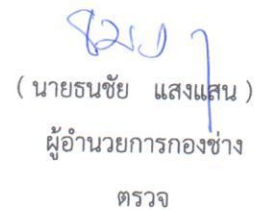 ( นายธนชัย แสงแสน )
ผู้อำนวยการกองช่าง
ตรวจ